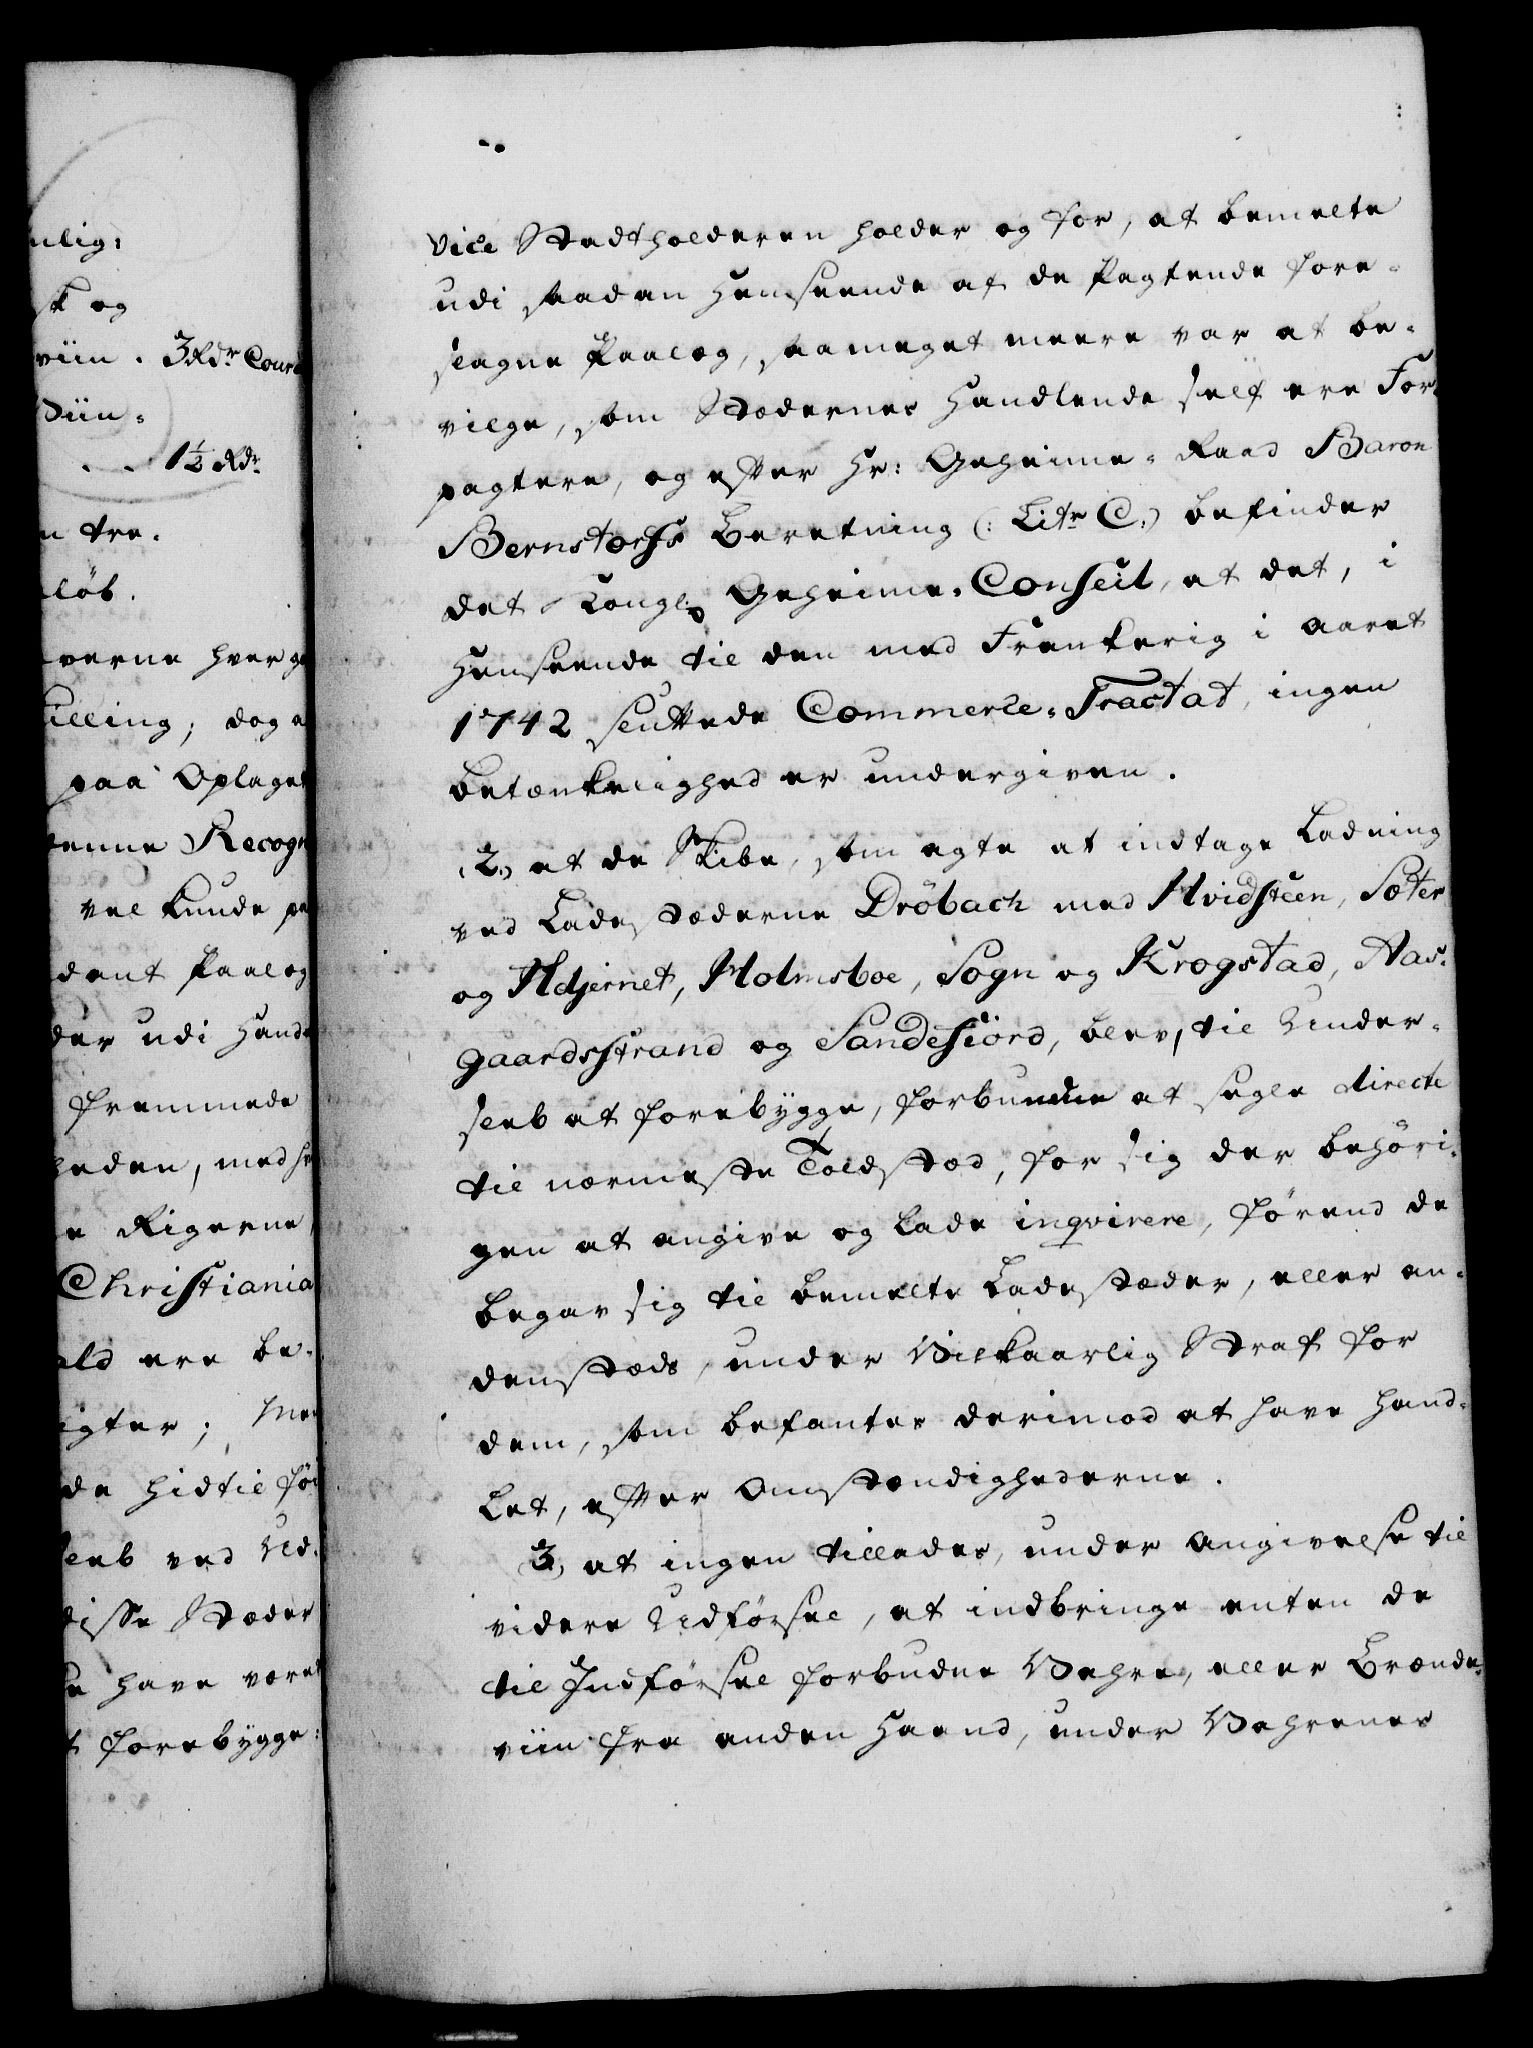 nlig:
sk og
viin . 3 Rdr Cour
Viin.
. . 1½ Rdr
n tre.
löb.
verne hver g
illing; dog a
paa Oplaget
enne Recogn
vel kunde pa
dent Paalæg
der udi Hand
fremmede
heden, med h
e Rigerne,
Christiania
ald ere be-
igter; Me
de hidtil för
sleb ved Ud-
disse Stæder
e have været
t forebygge:
Vice Stadtholderen holder og for, at bemelte
udi saadan Henseende af de Pagtende fore-
slagne Paalæg, saameget meere var at be-
vilge, som Stædernes Handlende self ere For-
pagtere, og efter Hr: Geheime-Raad Baron
Bernstorffs Beretning (: Litr C:) befinder
det Kongl: Geheime-Conseil, at det, i
Henseende til den med Frankerig i Aaret
1742 sluttede Commerce-Tractat, ingen
Betænkelighed er undergiven.
(2.) at de Skibe, som agte at indtage Ladning
ved Ladestæderne Dröbach med Hvidsteen, Sæter
og Hdjernet, Holmsboe, Sogn og Krogstad, Aas-
gaardsstrand og Sandefiörd, blev, til Under-
sleb at forebygge, forbundne at segle directe
til nærmeste Toldstæd, for sig der behöri-
gen at angive og lade inqvirere, förend de
begav sig til bemelte Ladestæder, eller an-
denstæds, under Vilkaarlig Straf for
dem, som befantes derimod at have hand-
let, efter Omstændighederne.
3) at ingen tillades, under Angivelse til
videre Udförsel, at indbringe enten de
til Indförsel forbudne Vahre, eller Brænde-
viin fra anden Haand, under Vahrenes